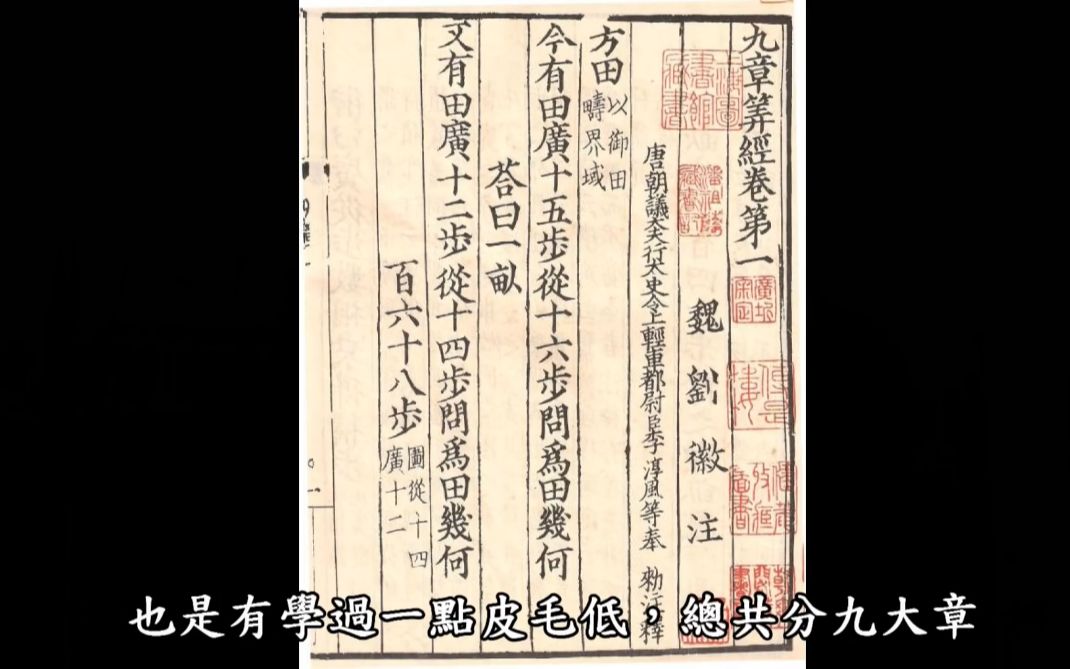 九章筭經卷第一
魏劉徽注
唐朝議大夫行太史令上輕車都尉臣李淳風等奉 勑注釋
方田以御田疇界域
今有田廣十五步從十六步問為田幾何
荅曰一畝
又有田廣十二步從十四步問為田幾何
百六十八步圖從十四廣十二
也是有學過一點皮毛低，總共分九大章